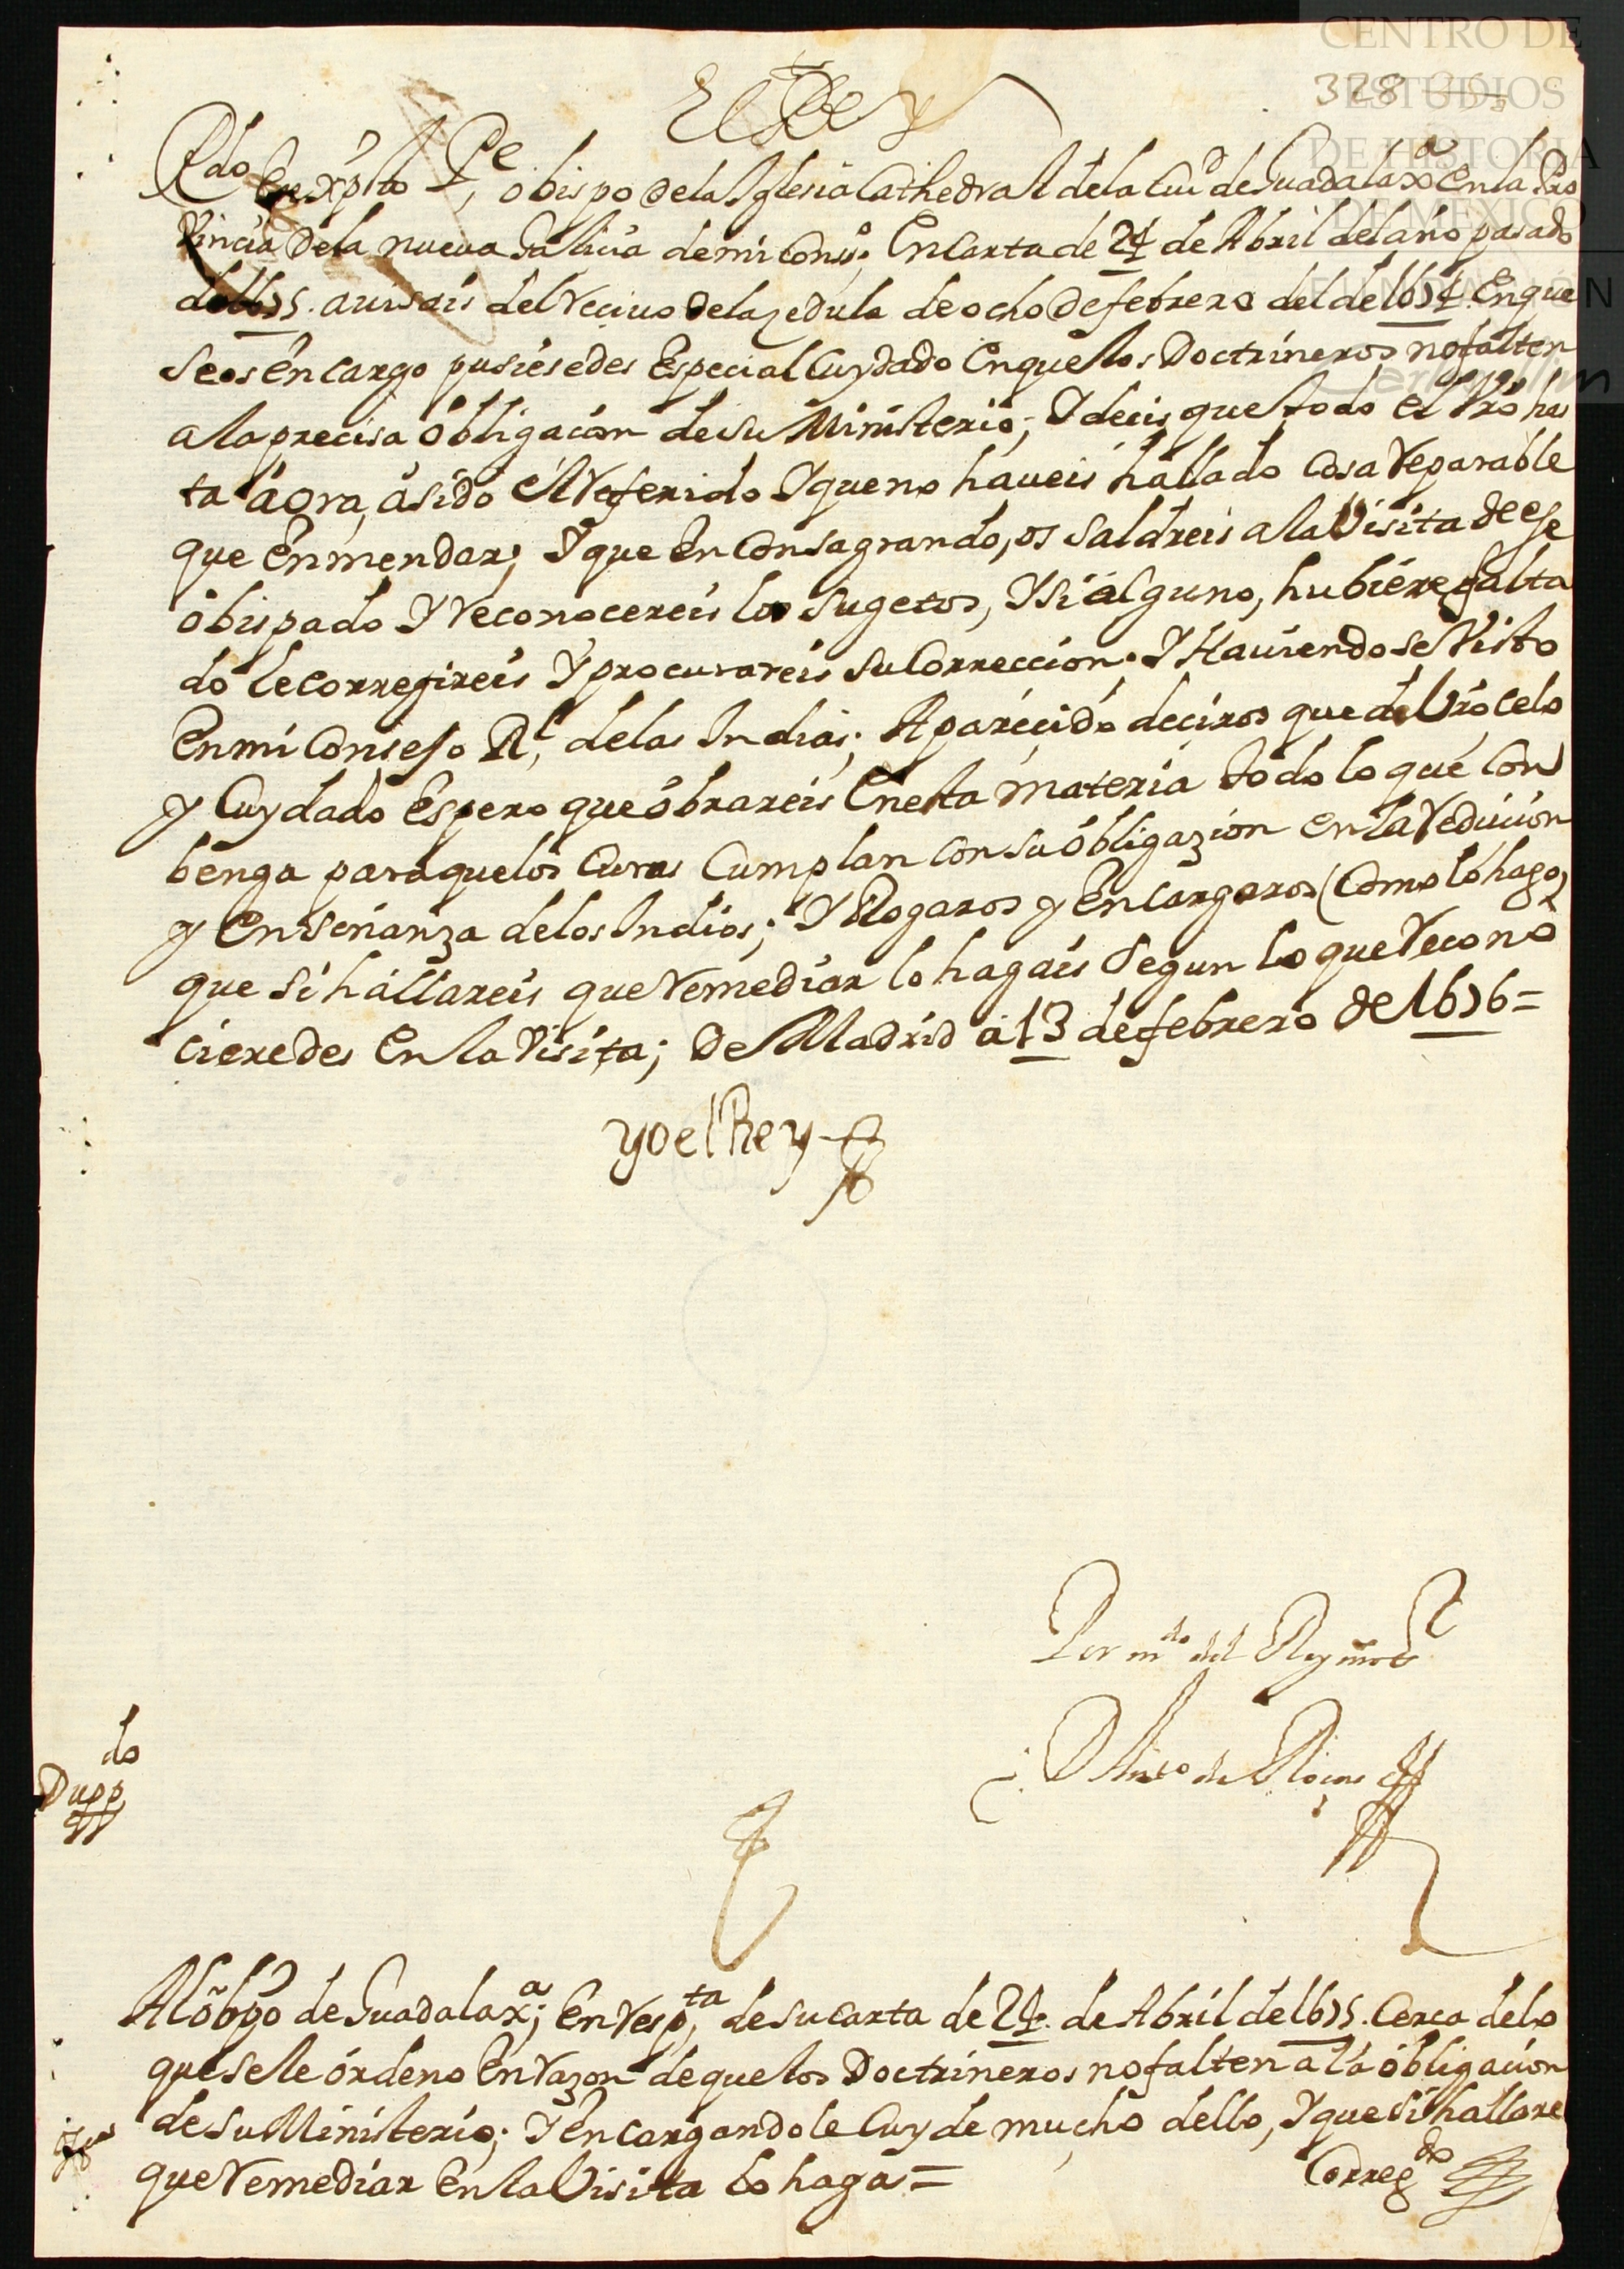 CENTRO DE
ESTUDIOS
DE HISTORIA
DE MEXICO
FUNDACIÓN
328
El Rey
Rdo en xpto Pe, obispo de la Iglesia Cathedral de la Ciud de Guadalaxa en la Pro
vincia de la nueva Galicia de mi Conso; En Carta de 24 de Abril del año pasado
de 1675. avisais del Recivo de la zedula de ocho de febrero del de 1674 En que
se os encargo pusiesedes Especial Cuydado En que los Doctrineros no falten
a la precisa obligacion de su Ministerio; Y decis que todo el tpo has
ta aora, a sido el Referido Y que no haveis hallado cosa Reparable
que Enmendar; Y que En Consagrando, os saldreis a la Visita de ese
obispado Y Reconocereis los sugetos, Y si alguno, hubiere falta
do le corregireis Y procurareis su Correccion; Y Haviendose Visto
En mi Consejo Rl, de las Indias; A parecido deciros que de Vro celo
y Cuydado Espero que obrareis En esta materia todo lo que Con
benga para que los Curas Cumplan con su obligazion en la Reducion
y Enseñanza de los Indios; Y Rogaros y Encargaros (Como lo hago)
que si hallareis que Remediar lo hagais segun lo que Recono
cieredes En la Visita; De Madrid a 13 de febrero de 1676=
yo el Rey
Por mdo del Rey nro sr
Dn Anto de Roças
do
Dupp
Al obpo de Guadalaxa; En Respta, de su carta de 24. de Abril de 1675. Cerca de lo
que se le ordeno En razon de que los Doctrineros no falten a la obligacion
de su Ministerio; Y Encargandole Cuyde mucho dello, Y que si hallare
que Remediar En la Visita lo haga=
Corregdo